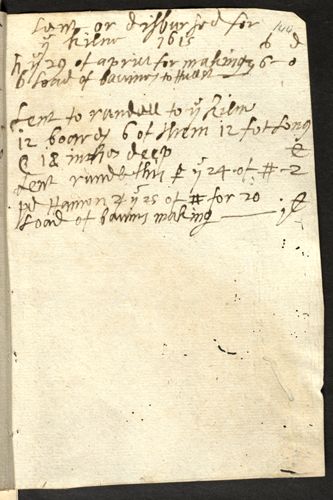 Lent or disbursed for
ye Kilne 1615
ye 29 of aprill for making 6 0
6 load of bavines
Lent to randall to ye kilne
12 boards 6 of them 12 fot long
& 18 inches deep
Lent ye 24 of # - 2
pd Hamon ye 25 of # for 20
load of bavins making